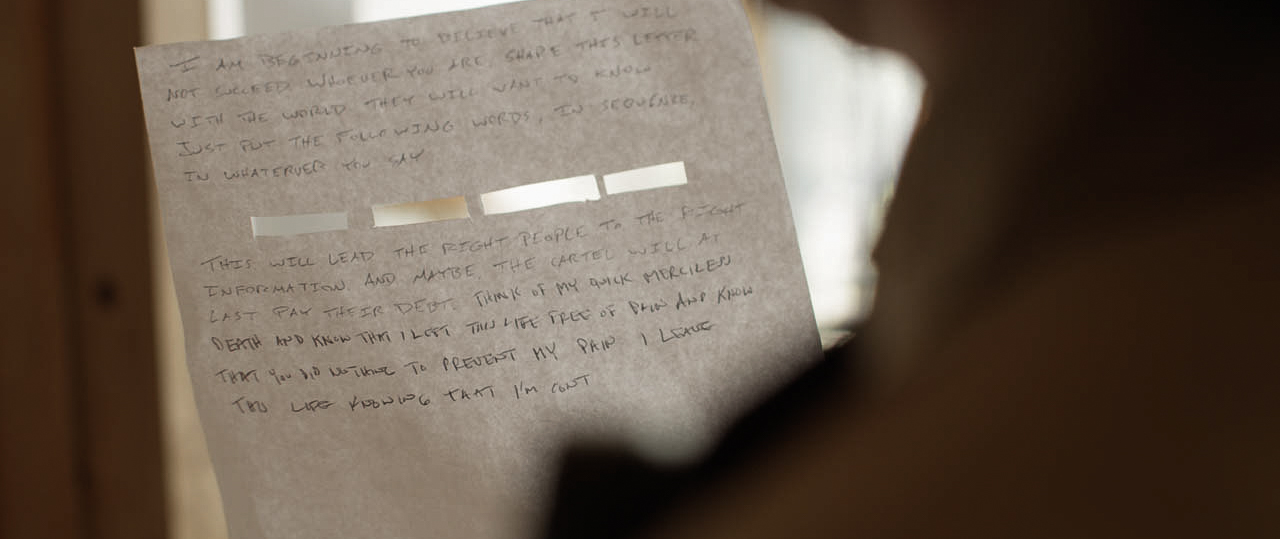 I AM BEGINNING TO BELIEVE THAT I WILL
NOT SUCCEED WHOEVER YOU ARE, SHARE THIS LETTER
WITH THE WORLD THEY WILL WANT TO KNOW
JUST PUT THE FOLLOWING WORDS, IN SEQUENCE,
IN WHATEVER YOU SAY
THIS WILL LEAD THE RIGHT PEOPLE TO THE RIGHT
INFORMATION. AND MAYBE, THE CARTEL WILL AT
LAST PAY THEIR DEBT. THINK OF MY QUICK MERCILESS
DEATH AND KNOW THAT I LEFT THIS LIFE FREE OF PAIN AND KNOW
THAT YOU DID NOTHING TO PREVENT MY PAIN I LEAVE
THIS LIFE KNOWING THAT I'M CONT